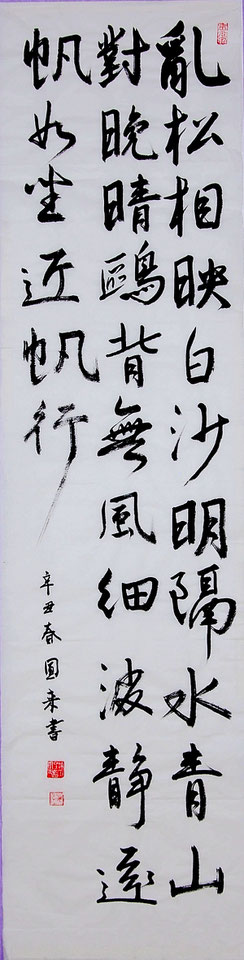 亂松相映白沙明隔水青山
對晚晴鷗背無風細波靜遠
帆如坐近帆行
辛丑春圓來書